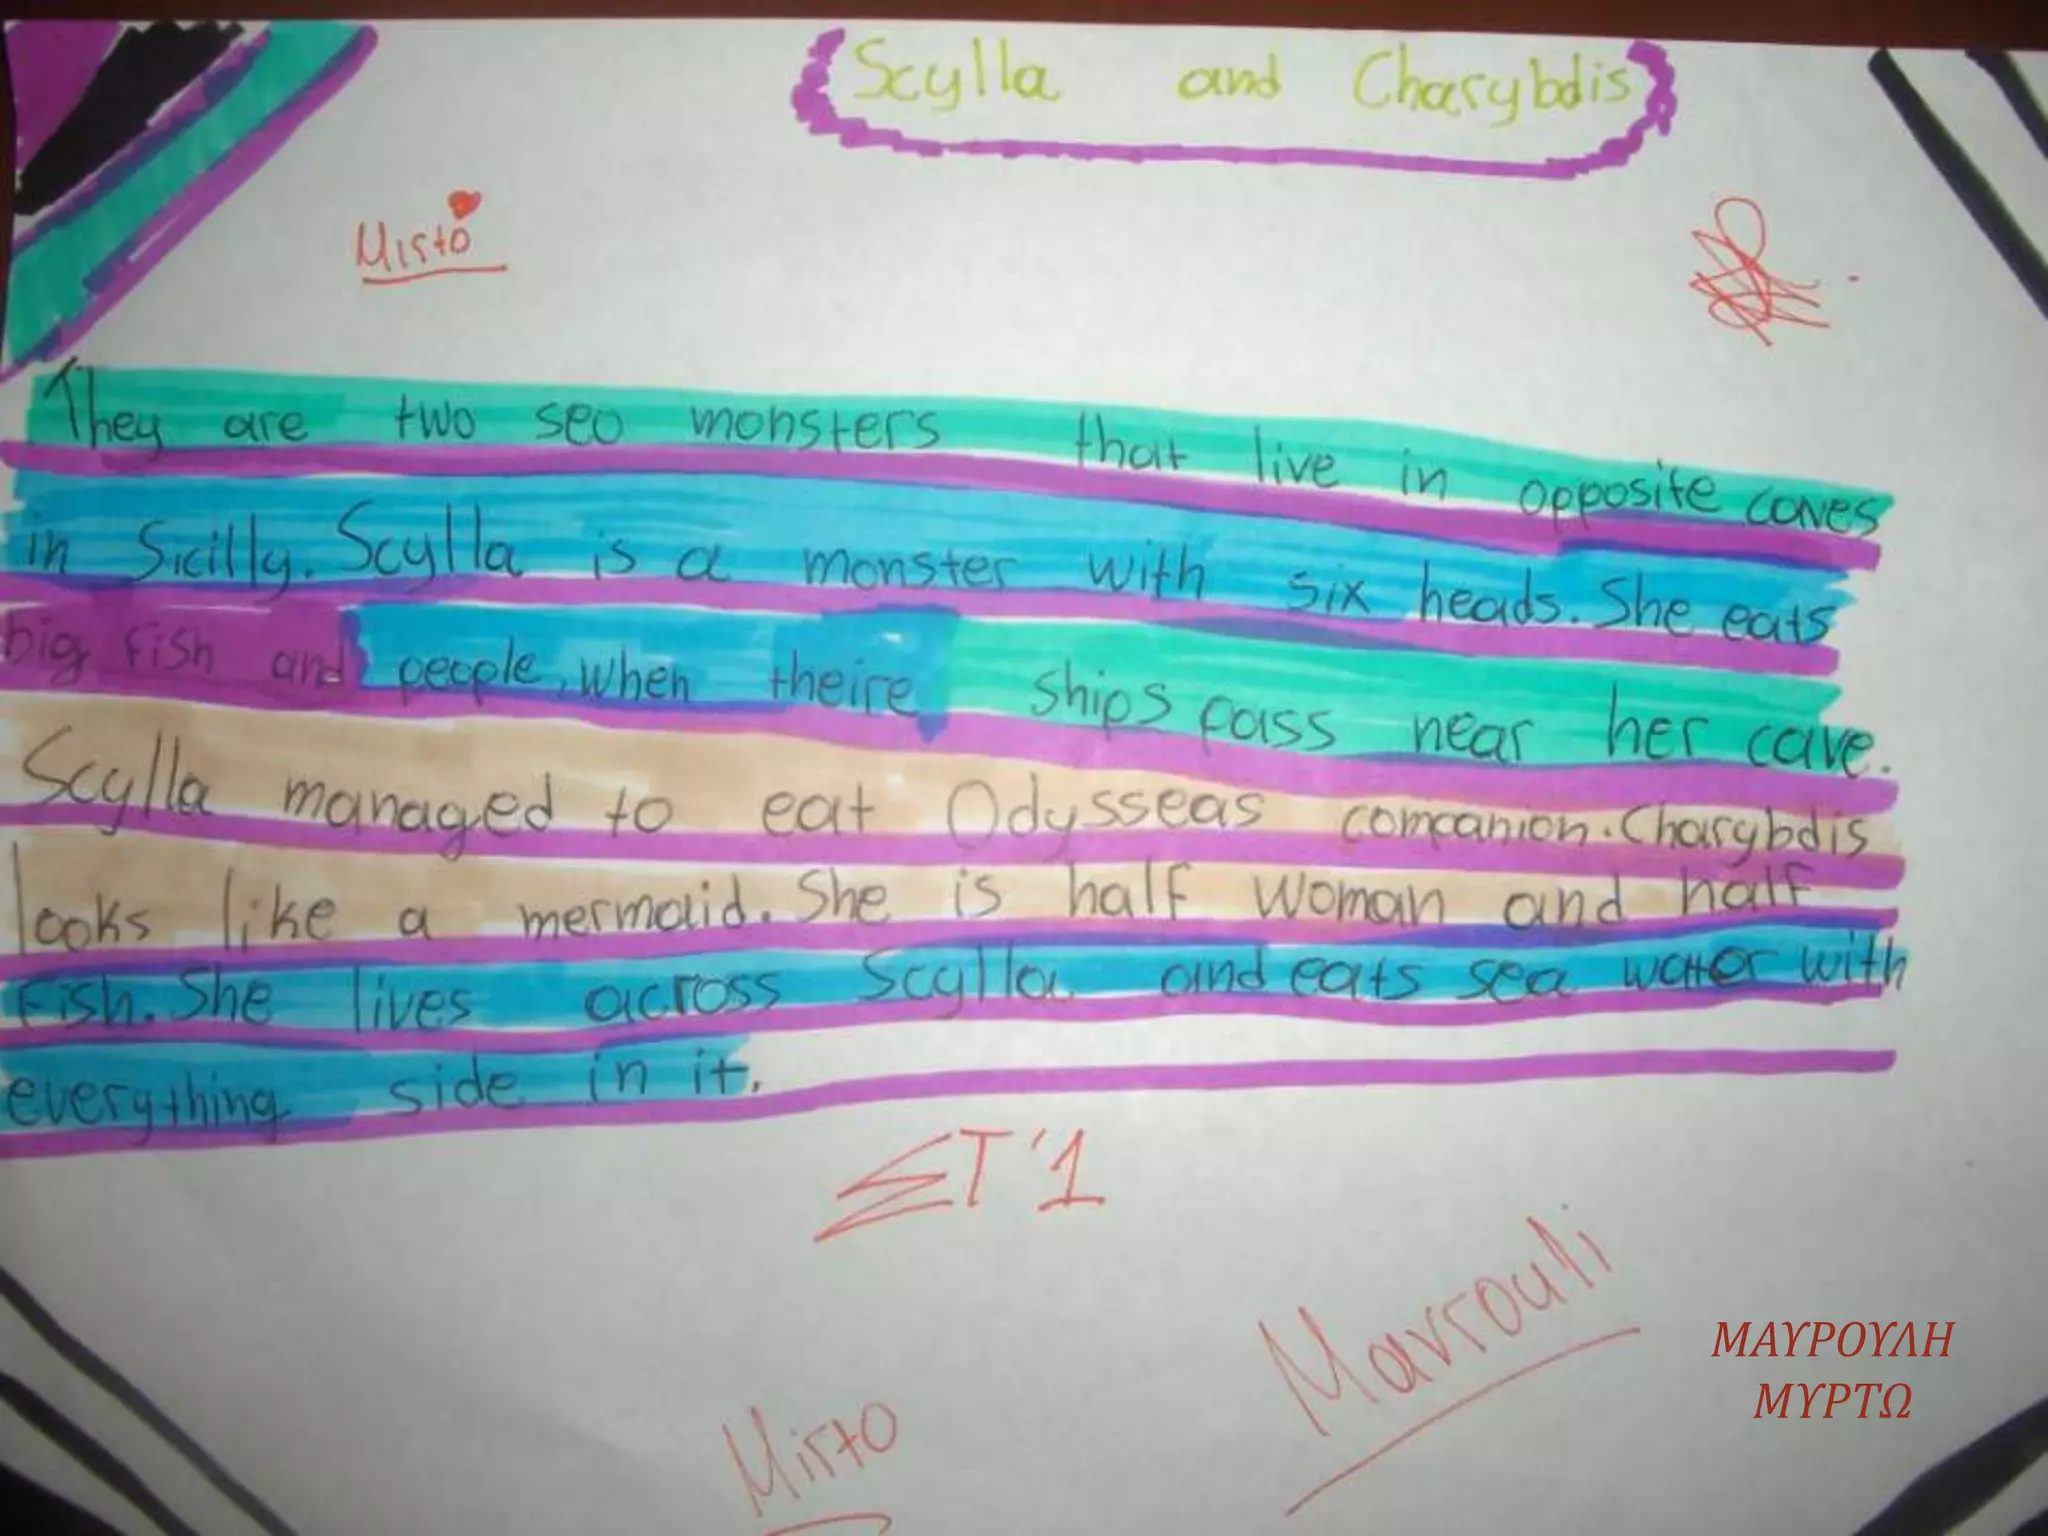 Scylla and Charybdis
Mirto
They are two sea monsters that live in opposite caves
in Sicilly. Scylla is a monster with six heads. She eats
big fish and people, when theire ships pass near her cave.
Scylla managed to eat Odysseas companion. Charybdis
looks like a mermaid. She is half woman and half
fish. She lives across Scylla and eats sea water with
everything side in it.
ΣΤ'1
Mavrouli
ΜΑΥΡΟΥΛΗ
ΜΥΡΤΩ
Mirto